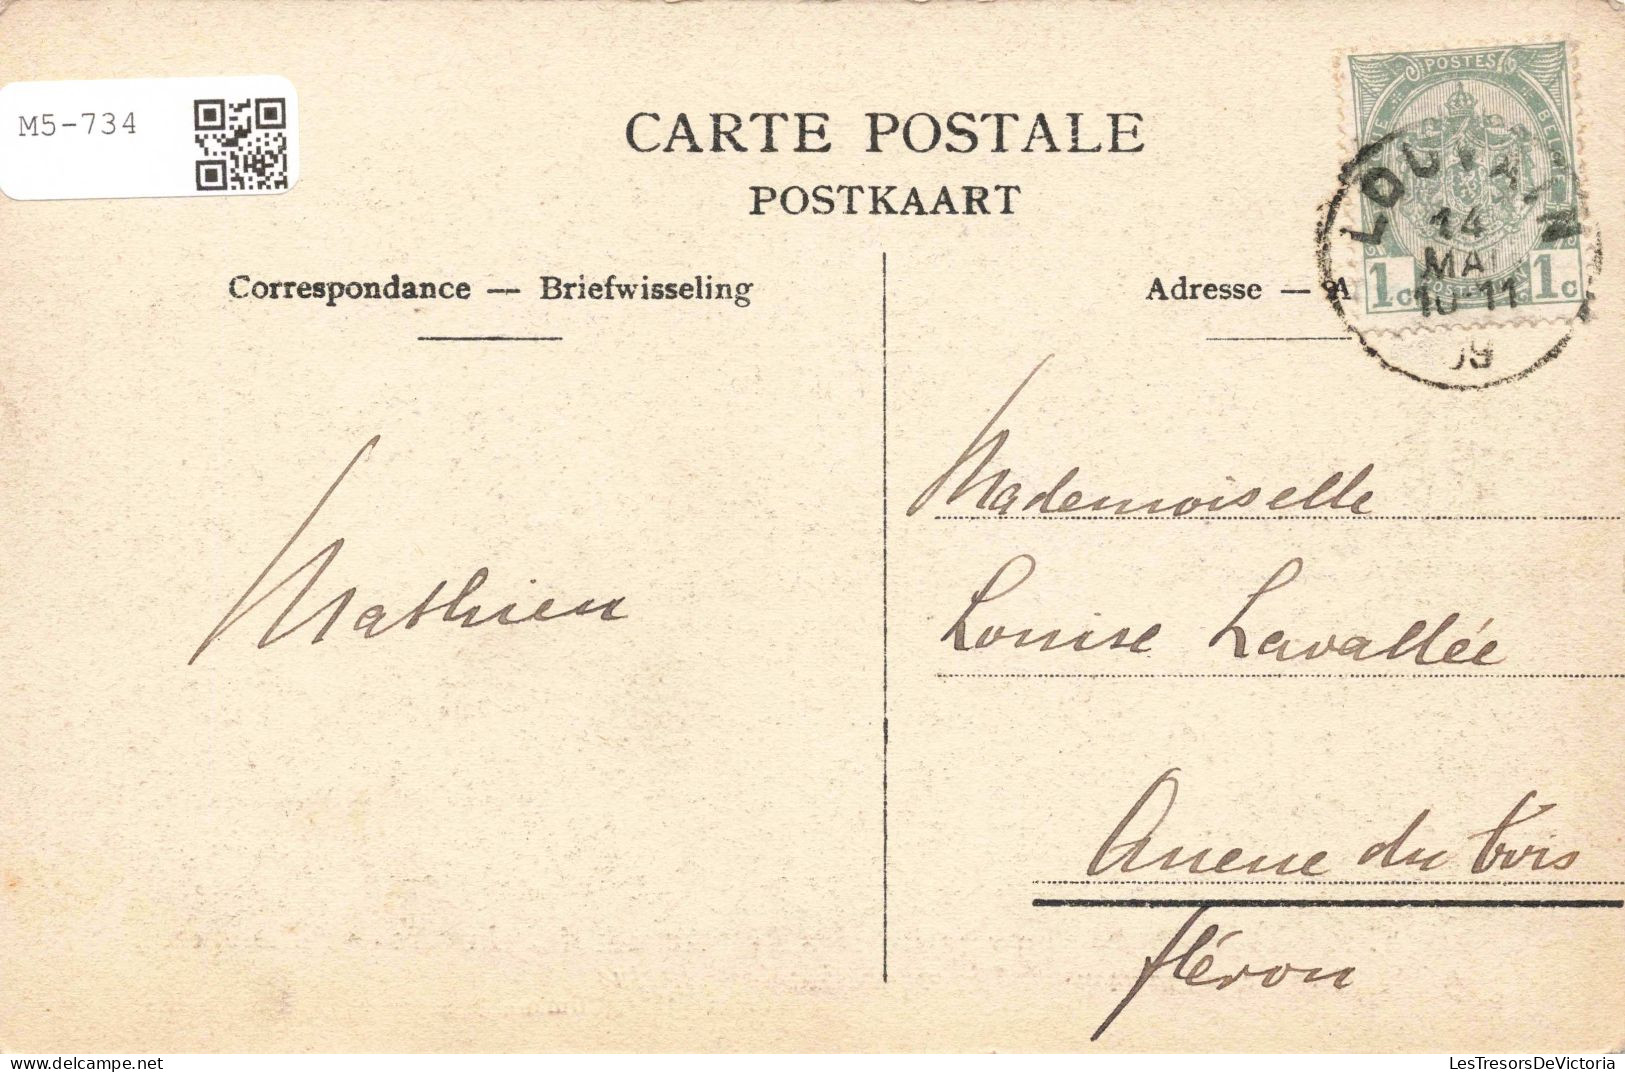 M5-734
CARTE POSTALE
POSTKAART
Correspondance — Briefwisseling
Adresse — A
POSTES
LOUVAIN
14
MAI
10-11
09
1c 1c
Mathieu
Mademoiselle
Louise Lavallée
Avenue du bois
fléron
LesTresorsDeVictoria